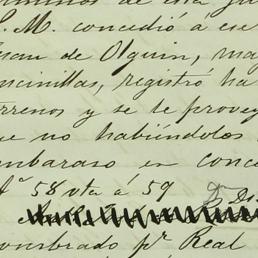 S. M. concedió á ese
Juan de Olguin, ma
ncinillas, registró ha
rrenos y se le provey
que no habiéndolos
embarazo en conce
58 vta á 59
nombrado pr. Real